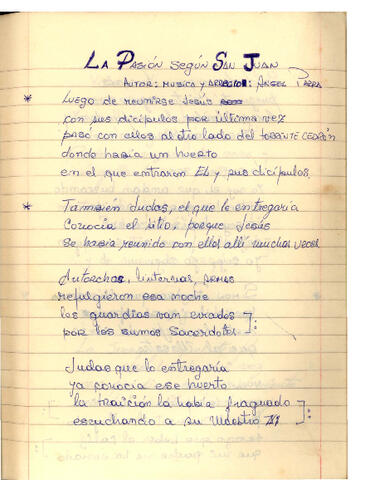 LA PASIÓN SEGÚN SAN JUAN
AUTOR: MUSICA Y ARREGLOS: ÁNGEL PARRA
* Luego de reunirse Jesús
con sus dicípulos por última vez
pasó con ellos al otro lado del torrente Cedrón
donde había un huerto
en el que entraron El y sus dicípulos.
* También Judas, el que le entregaría
Conocía el sitio, porque Jesús
se había reunido con ellos allí muchas veces
Antorchas, linternas, armas
refulgieron esa noche
los guardias van enviados
por los sumos Sacerdotes ]:
Judas que lo entregaría
ya conocía ese huerto
la traición la había fraguado
escuchando a su Maestro ]: